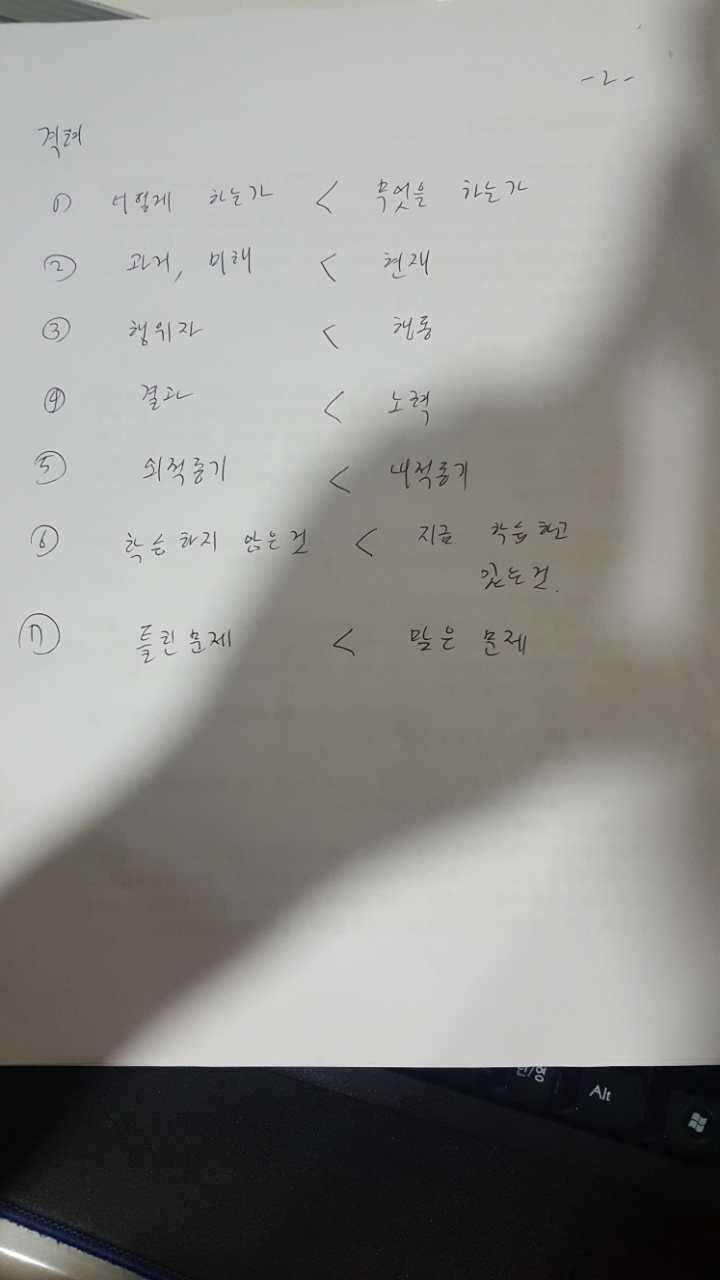 -2-
격려
① 어떻게 하는가 < 무엇을 하는가
② 과거, 미래 < 현재
③ 행위자 < 행동
④ 결과 < 노력
⑤ 외적동기 < 내적동기
⑥ 학습하지 않은 것 < 지금 학습하고
있는 것.
⑦ 틀린 문제 < 맞은 문제
한/영
Alt